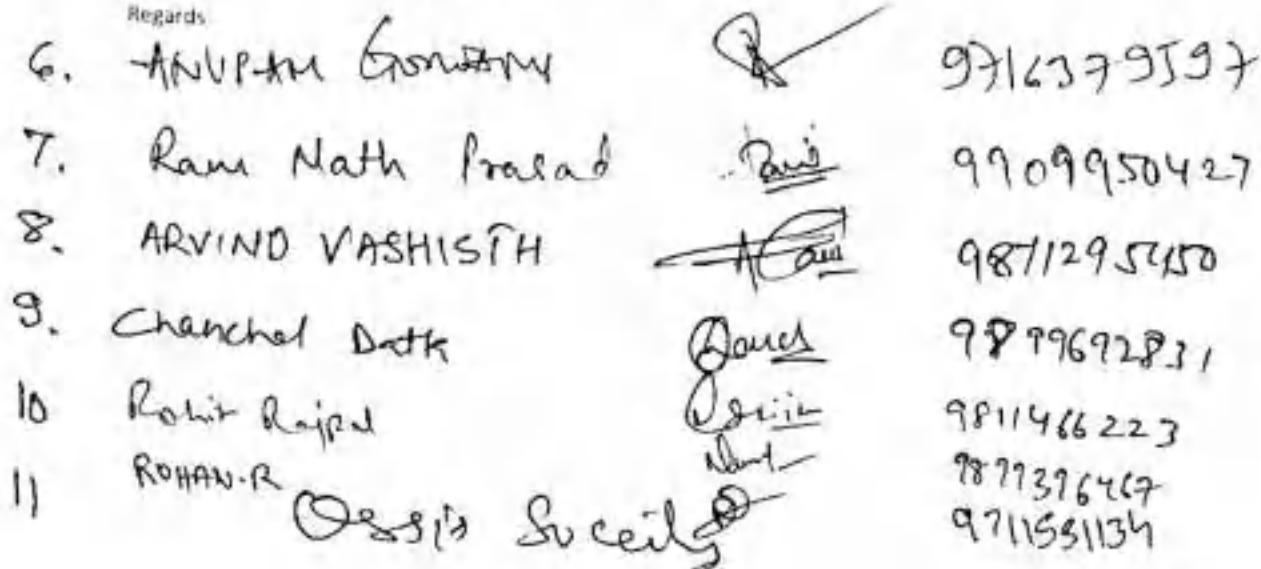 Regards
6. ANUPAM GOSWAMY 9716379597
7. Ram Nath Prasad 9909950427
8. ARVIND VASHISTH 9871295450
9. Chanchal Datta 9899692831
10 Rohit Rajpal 9811466223
11 ROHAN.R 9899396467
9711551134